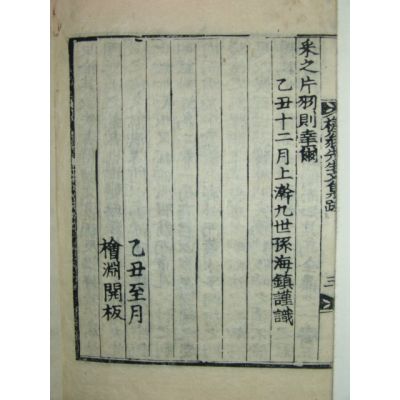 采之片羽則幸爾
乙丑十二月上澣九世孫海鎮謹識
乙丑至月
檜淵開板
先生文集跋
三